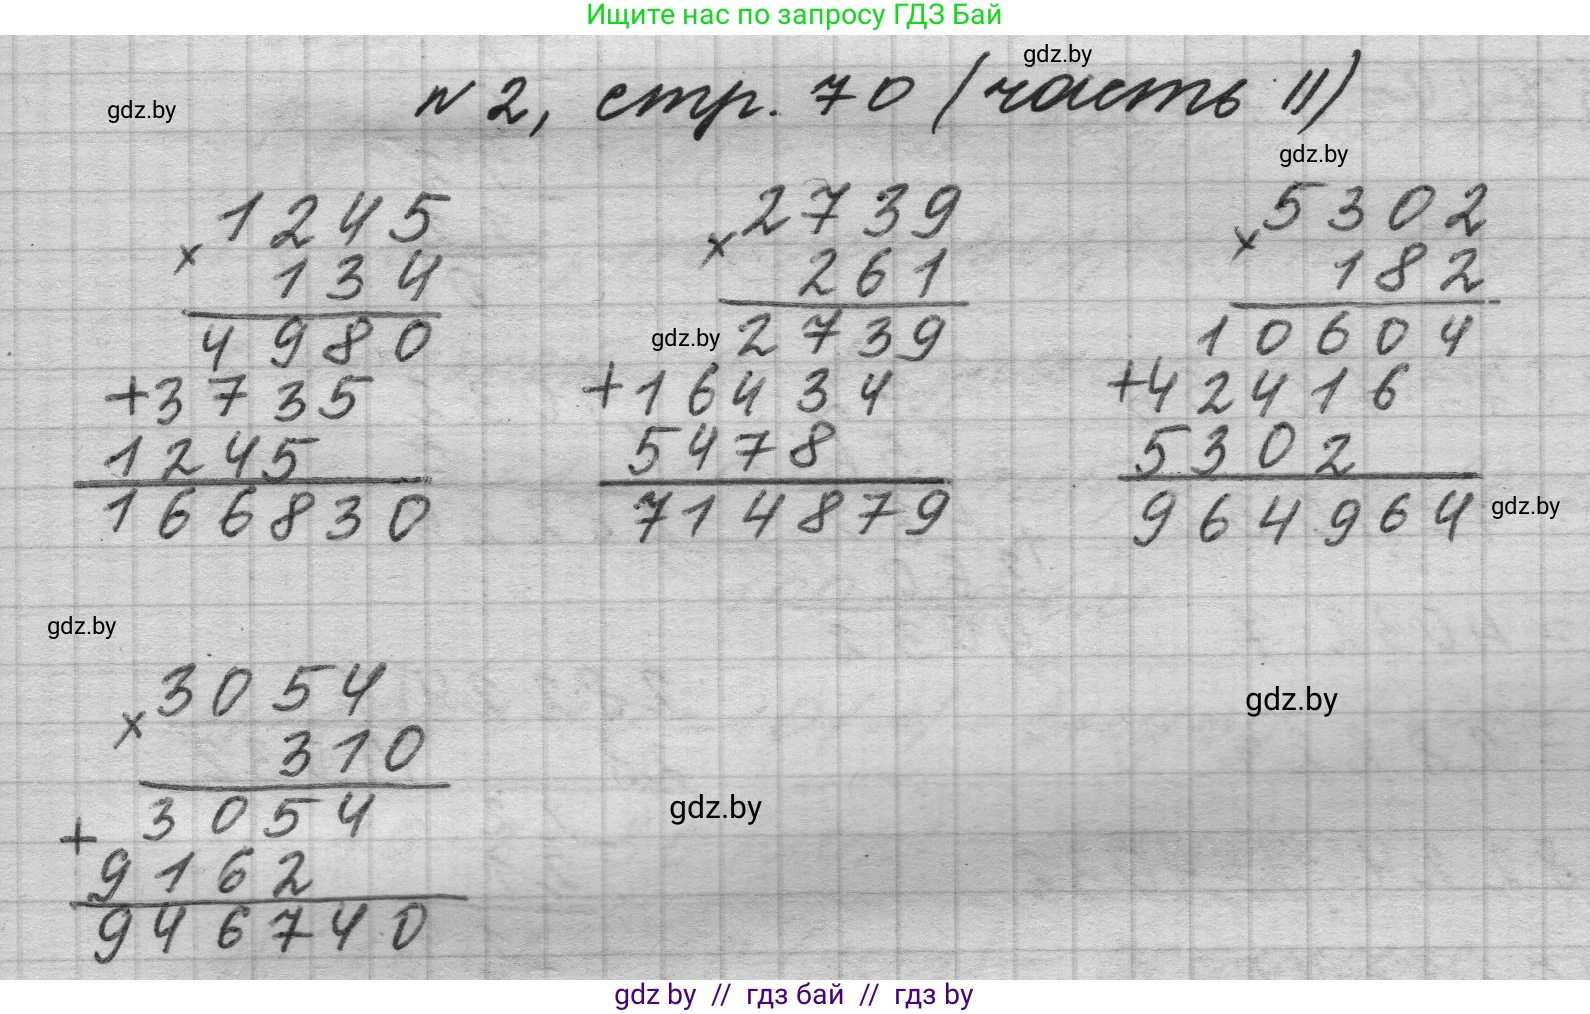 Ищите нас по запросу ГДЗ Бай
gdz.by
№ 2, стр. 70 (часть II)
gdz.by
gdz.by
× 1245
134
4980
+3735
1245
166830
× 2739
261
gdz.by
2739
+16434
5478
714879
× 5302
182
10604
+42416
5302
964964
gdz.by
gdz.by
× 3054
310
3054
+ 9162
946740
gdz.by
gdz.by
gdz by // гдз бай // гдз by